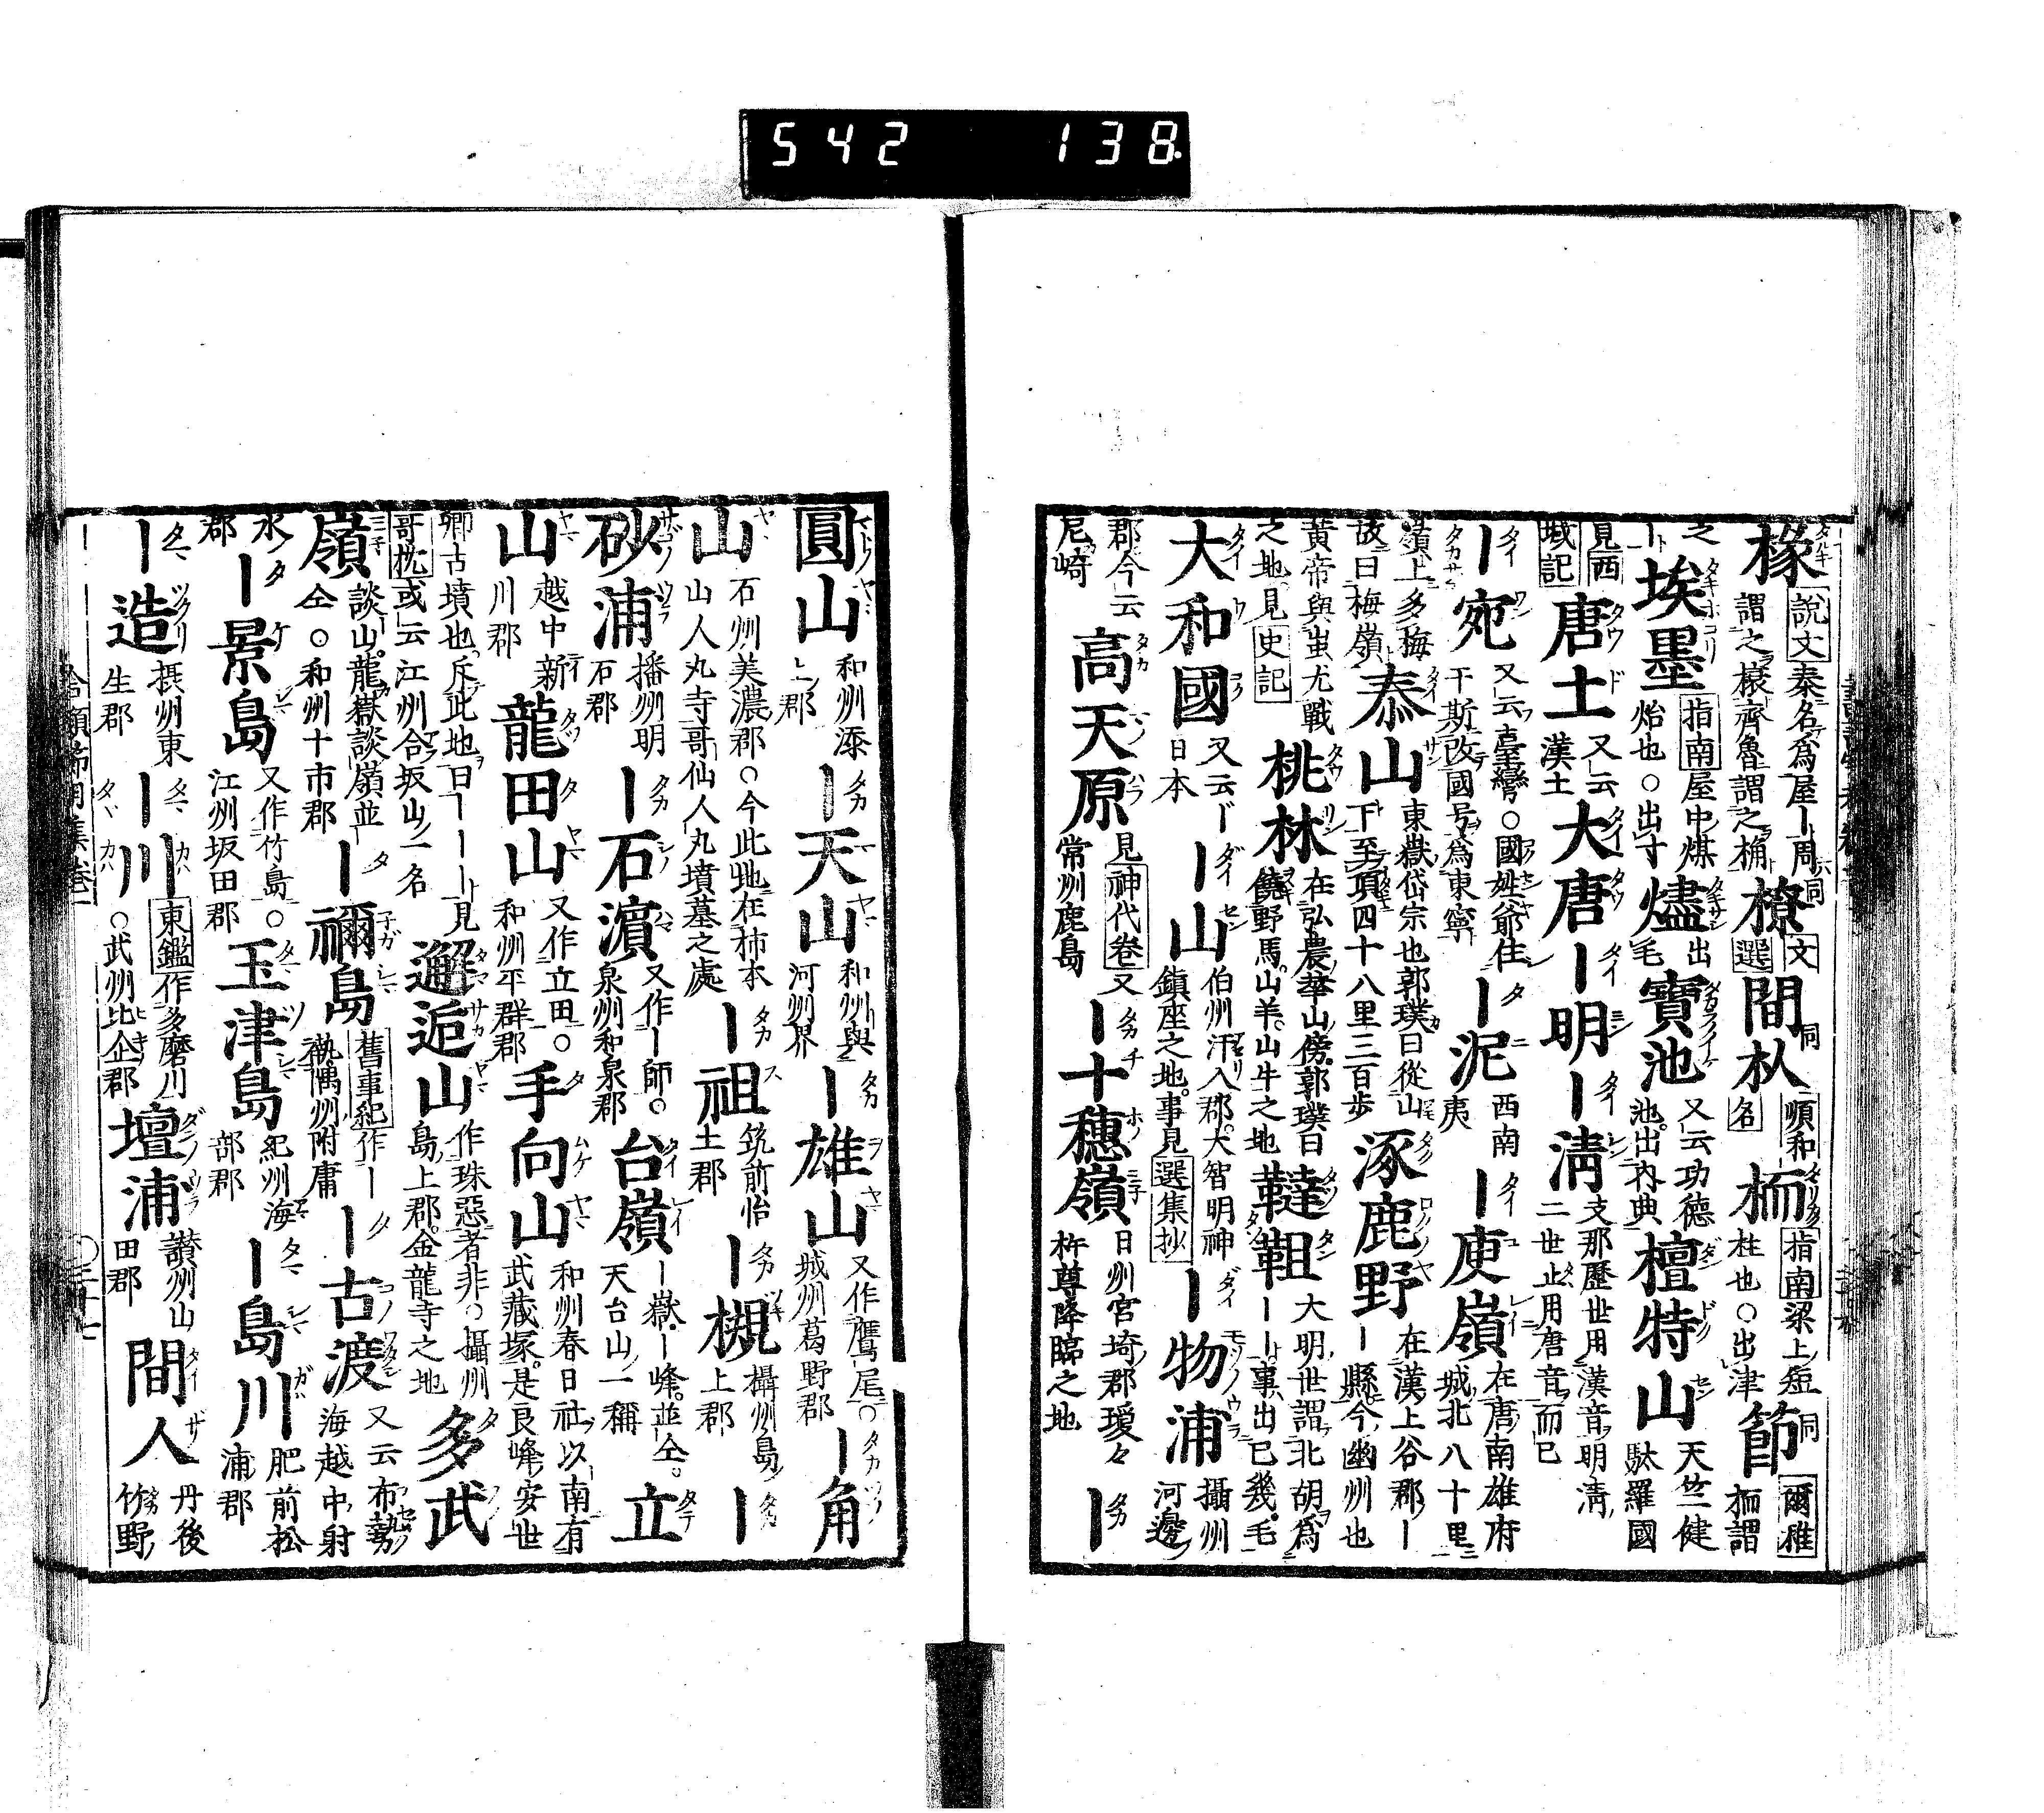 542 138
椽 說文秦名爲屋ー周謂之榱齊魯謂之桷 橑 文選 間杁 順和名 栭 指南梁上短柱也○出津 節 爾雅栭謂之
ー 埃墨 指南屋中煤炲也○出寸 燼 出毛 寶池 又云功德池出內典 檀特山 天竺健馱羅國見西域記
唐土 又云漢土 大唐 ー明 ー淸 支那歷世用漢音明淸二世止用唐音而已
ー宛 又云臺灣○國姓爺住于斯改國号爲東寧 ー泥 西南夷 ー庾嶺 在唐南雄府城北八十里嶺上多梅故曰梅嶺
泰山 東嶽岱宗也郭璞曰從山下至項四十八里三百步 涿鹿野 在漢上谷郡ー縣今幽州也黃帝與蚩尤戰之地見史記
桃林 在弘農華山傍郭璞曰饒野馬山羊山牛之地 韃靼 大明世謂北胡爲ーー事出已幾毛
大和國 又云日本 ー山 伯州汗入郡大智明神鎮座之地事見選集抄 ー物浦 攝州河邊郡今云尼崎
高天原 見神代卷又常州鹿島 ー十穗嶺 日州宮埼郡瓊々杵尊降臨之地 ー
圓山 和州添上郡 ー天山 和州與河州界 ー雄山 又作鷹尾○城州葛野郡 ー角
山 石州美濃郡○今此地在柿本山人丸寺哥仙人丸墳墓之處 ー祖 筑前怡土郡 ー槻 攝州島上郡 ー
砂浦 播州明石郡 ー石濱 又作ー師○泉州和泉郡 台嶺 ー嶽ー峰並仝天台山一稱 立
山 越中新川郡 龍田山 又作立田○和州平群郡 手向山 和州春日社以南有武藏塚是良峰安世
卿古墳也斥此地曰ーーー見哥枕或云江州合坂山一名 邂逅山 作珠惡者非○攝州島上郡金龍寺之地 多武
嶺 談山龍嶽談嶺並仝○和州十市郡 ー禰島 舊事紀作ー𥝱隅州附庸 ー古渡 又云布勢海越中射
水郡 ー景島 又作竹島○江州坂田郡 玉津島 紀州海部郡 ー島川 肥前松浦郡
ー造 摂州東生郡 ー川 東鑑作多磨川○武州比企郡 壇浦 讃州山田郡 間人 丹後竹野